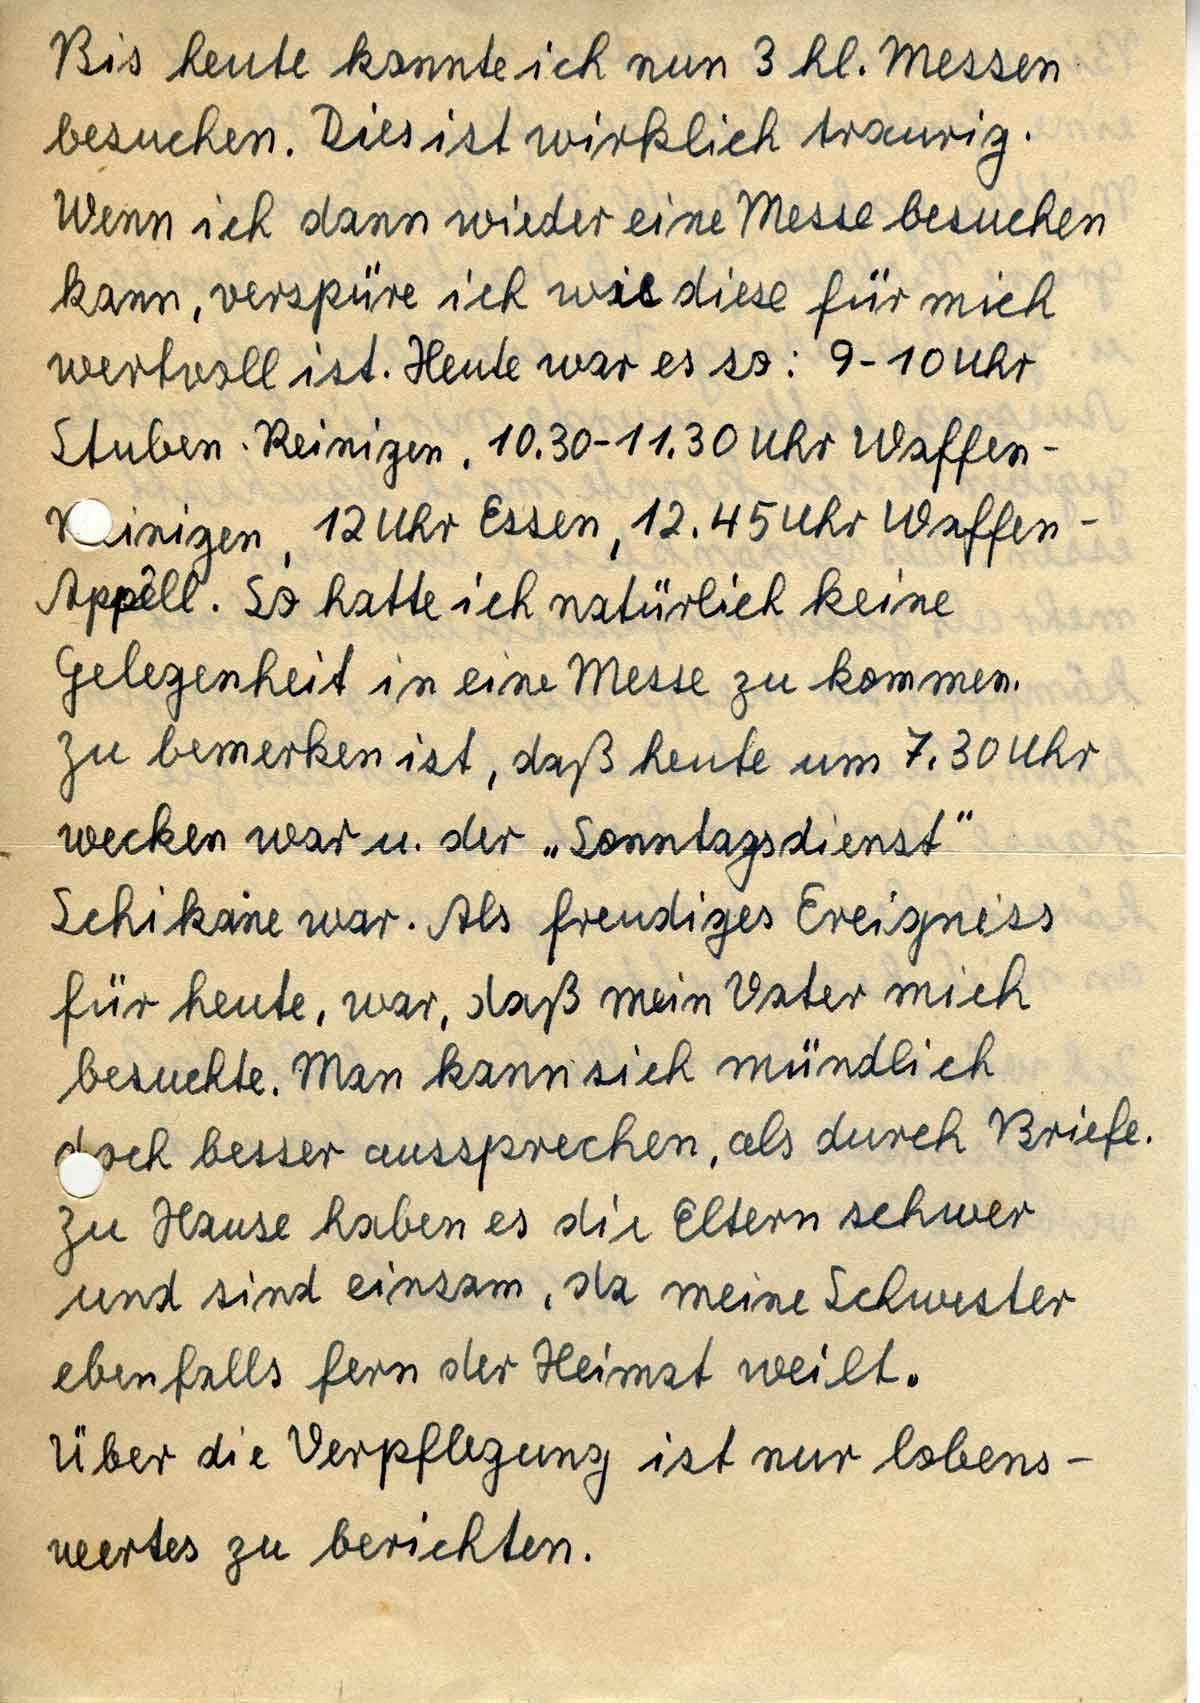 Bis heute konnte ich nun 3 hl. Messen
besuchen. Dies ist wirklich traurig.
Wenn ich dann wieder eine Messe besuchen
kann, verspüre ich wie diese für mich
wertvoll ist. Heute war es so: 9-10 Uhr
Stuben-Reinigen, 10.30-11.30 Uhr Waffen-
Reinigen, 12 Uhr Essen, 12.45 Uhr Waffen-
Appell. So hatte ich natürlich keine
Gelegenheit in eine Messe zu kommen.
Zu bemerken ist, daß heute um 7.30 Uhr
wecken war u. der „Sonntagsdienst"
Schikane war. Als freudiges Ereigniss
für heute, war, daß mein Vater mich
besuchte. Man kann sich mündlich
doch besser aussprechen, als durch Briefe.
Zu Hause haben es die Eltern schwer
und sind einsam, da meine Schwester
ebenfalls fern der Heimat weilt.
Über die Verpflegung ist nur lobens-
wertes zu berichten.